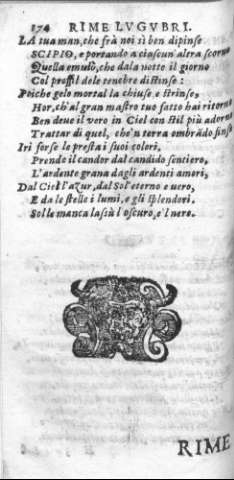 174 RIME LVGVBRI.
LA tua man, che frà noi sì ben dipinse
SCIPIO, e portando a ciascun'altra scorno
Quella emulò, che da la notte il giorno
Col profil de le tenebre distinse:
Poiche gelo mortal la chiuse, e strinse,
Hor, ch'al gran mastro tuo fatto hai ritorno
Ben deue il vero in Ciel con stil più adorno
Trattar di quel, che'n terra ombrãdo finse
Iri forse le presta i suoi colori,
Prende il candor dal candido sentiero,
L'ardente grana dagli ardenti amori,
Dal Ciel l'azur, dal Sol' eterno e vero,
E da le stelle i lumi, e gli splendori.
Sol le manca lasiù l'oscuro, e'l nero.
RIME